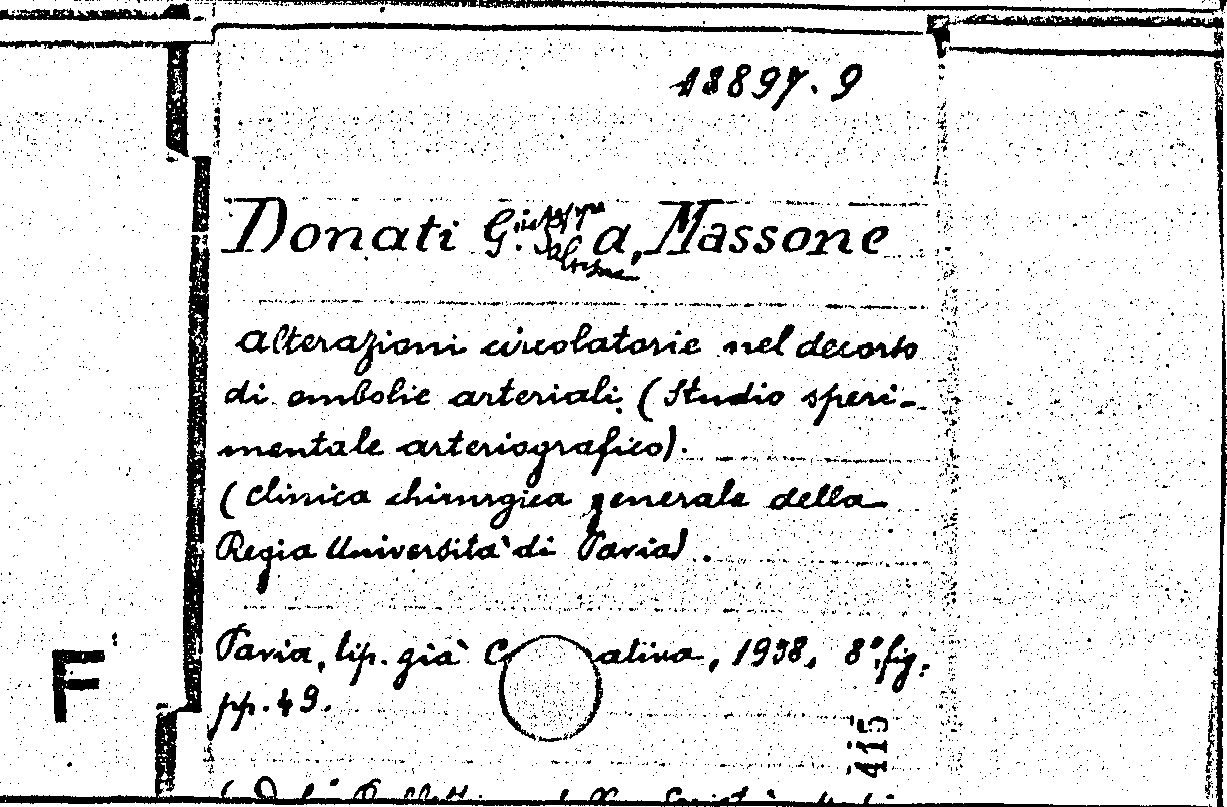 13897.9
Donati G. Giuseppe Salvatore a, Massone
Alterazioni circolatorie nel decorso
di embolie arteriali. (Studio speri-
mentale arteriografico).
(Clinica chirurgica generale della
Regia Università di Pavia).
Pavia, tip. già C ativa, 1938, 8° fig.
pp. 49.
415
F